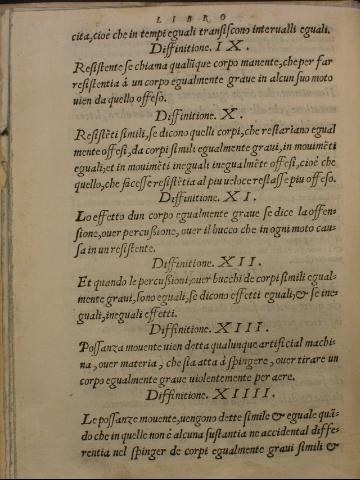 LIBRO
cita, cioè che in tempi eguali transiscono interualli eguali.
Diffinitione. IX.
Resistente se chiama qualũque corpo manente, che per far
resistentia à un corpo egualmente graue in alcun suo moto
uien da quello offeso.
Diffinitione. X.
Resistẽti simili, se dicono quelli corpi, che restariano egual
mente offesi, da corpi simili egualmente graui, in mouimẽti
eguali, et in mouimẽti ineguali inegualmẽte offesi, cioè che
quello, che facesse resistẽtia al piu ueloce restasse piu offeso.
Diffinitione. XI.
Lo effetto dun corpo egualmente graue se dice la offen-
sione, ouer percussione, ouer il bucco che in ogni moto cau-
sa in un resistente.
Diffinitione. XII.
Et quando le percussioni, ouer bucchi de corpi simili egual-
mente graui, sono eguali, se dicono effetti eguali, & se ine-
guali, ineguali effetti.
Diffinitione. XIII.
Possanza mouente uien detta qualunque artificial machi-
na, ouer materia, che sia atta à spingere, ouer tirare un
corpo egualmente graue uiolentemente per aere.
Diffinitione. XIIII.
Le possanze mouente, uengono dette simile & eguale quã-
do che in quelle non è alcuna sustantia ne accidental diffe-
rentia nel spinger de corpi egualmente graui simili &